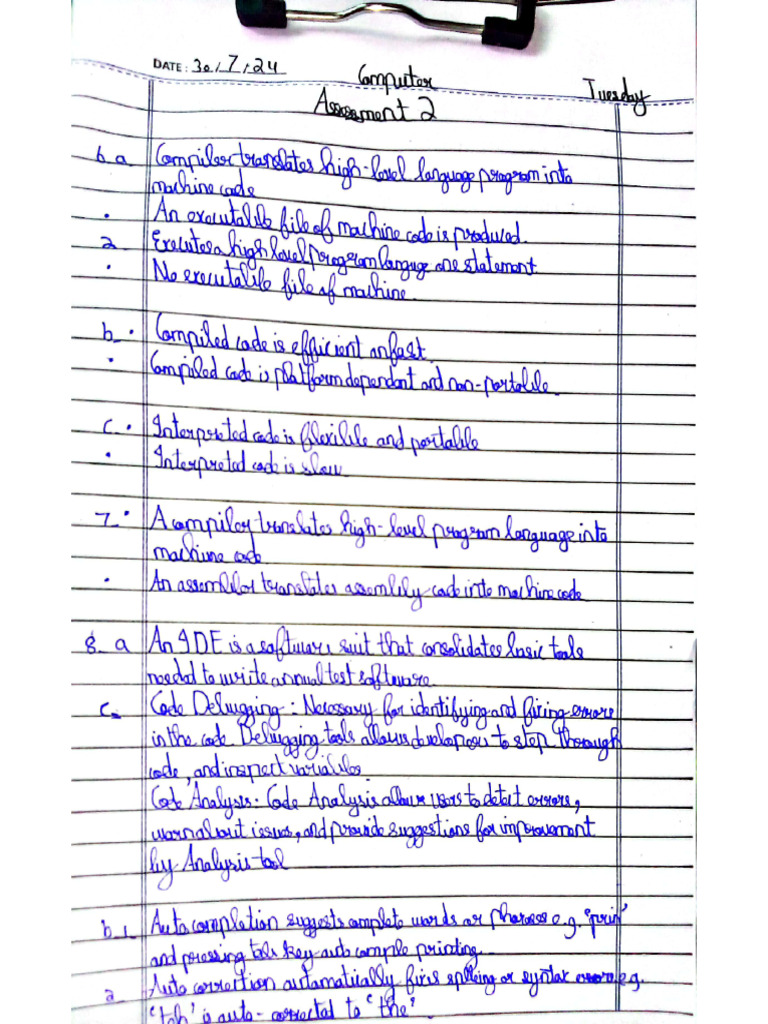 DATE: 30/7/24 Computer Tuesday
Assessment 2
6.a Compiler translates high-level language program into
machine code
. An executable file of machine code is produced.
2. Executes a high level program languge one statement
. No executable file of machine.
b. Compiled code is efficient an fast.
. Compiled code is platform dependant and non-portable.
c. Interpreted code is flexible and portable
. Interpreted code is slow
7. A compiler translates high-level program language into
machine code.
. An assembler translates assembly code into machine code
8. a An IDE is a software suit that consolidates basic tools
needed to write annual test software.
c. Code Debugging: Necessary for identifying and fixing errors
in the code. Debugging tools allows developers to step through
code, and inspect variables.
Code Analysis: Code Analysis allow users to detect errors,
warn about issues, and provide suggestions for improvement
by Analysis tool
b 1. Auto completion suggests complete words or phrases e.g. 'prin'
and pressing tab key auto comple printing.
2. Auto correction automatically fixes spelling or syntax errors e.g.
'teh' is auto-corrected to 'the'.